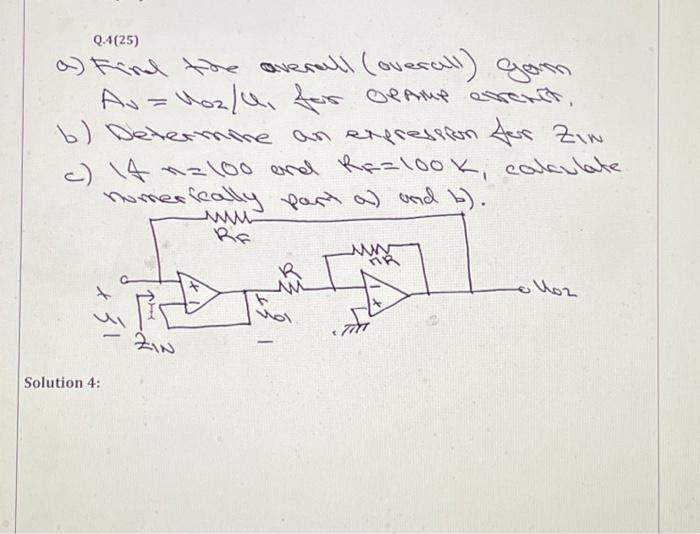 Q.4(25)
a) Find the overall (overall) gain
Av = Uo2/U1 for OPAMP circuit.
b) Determine an expression for ZIN
c) If n=100 and RF=100 K, calculate
numerically part a) and b).
RF
nR
R
+
-
+
-
+
U1
-
I
ZIN
+
Uo1
-
Uo2
Solution 4: